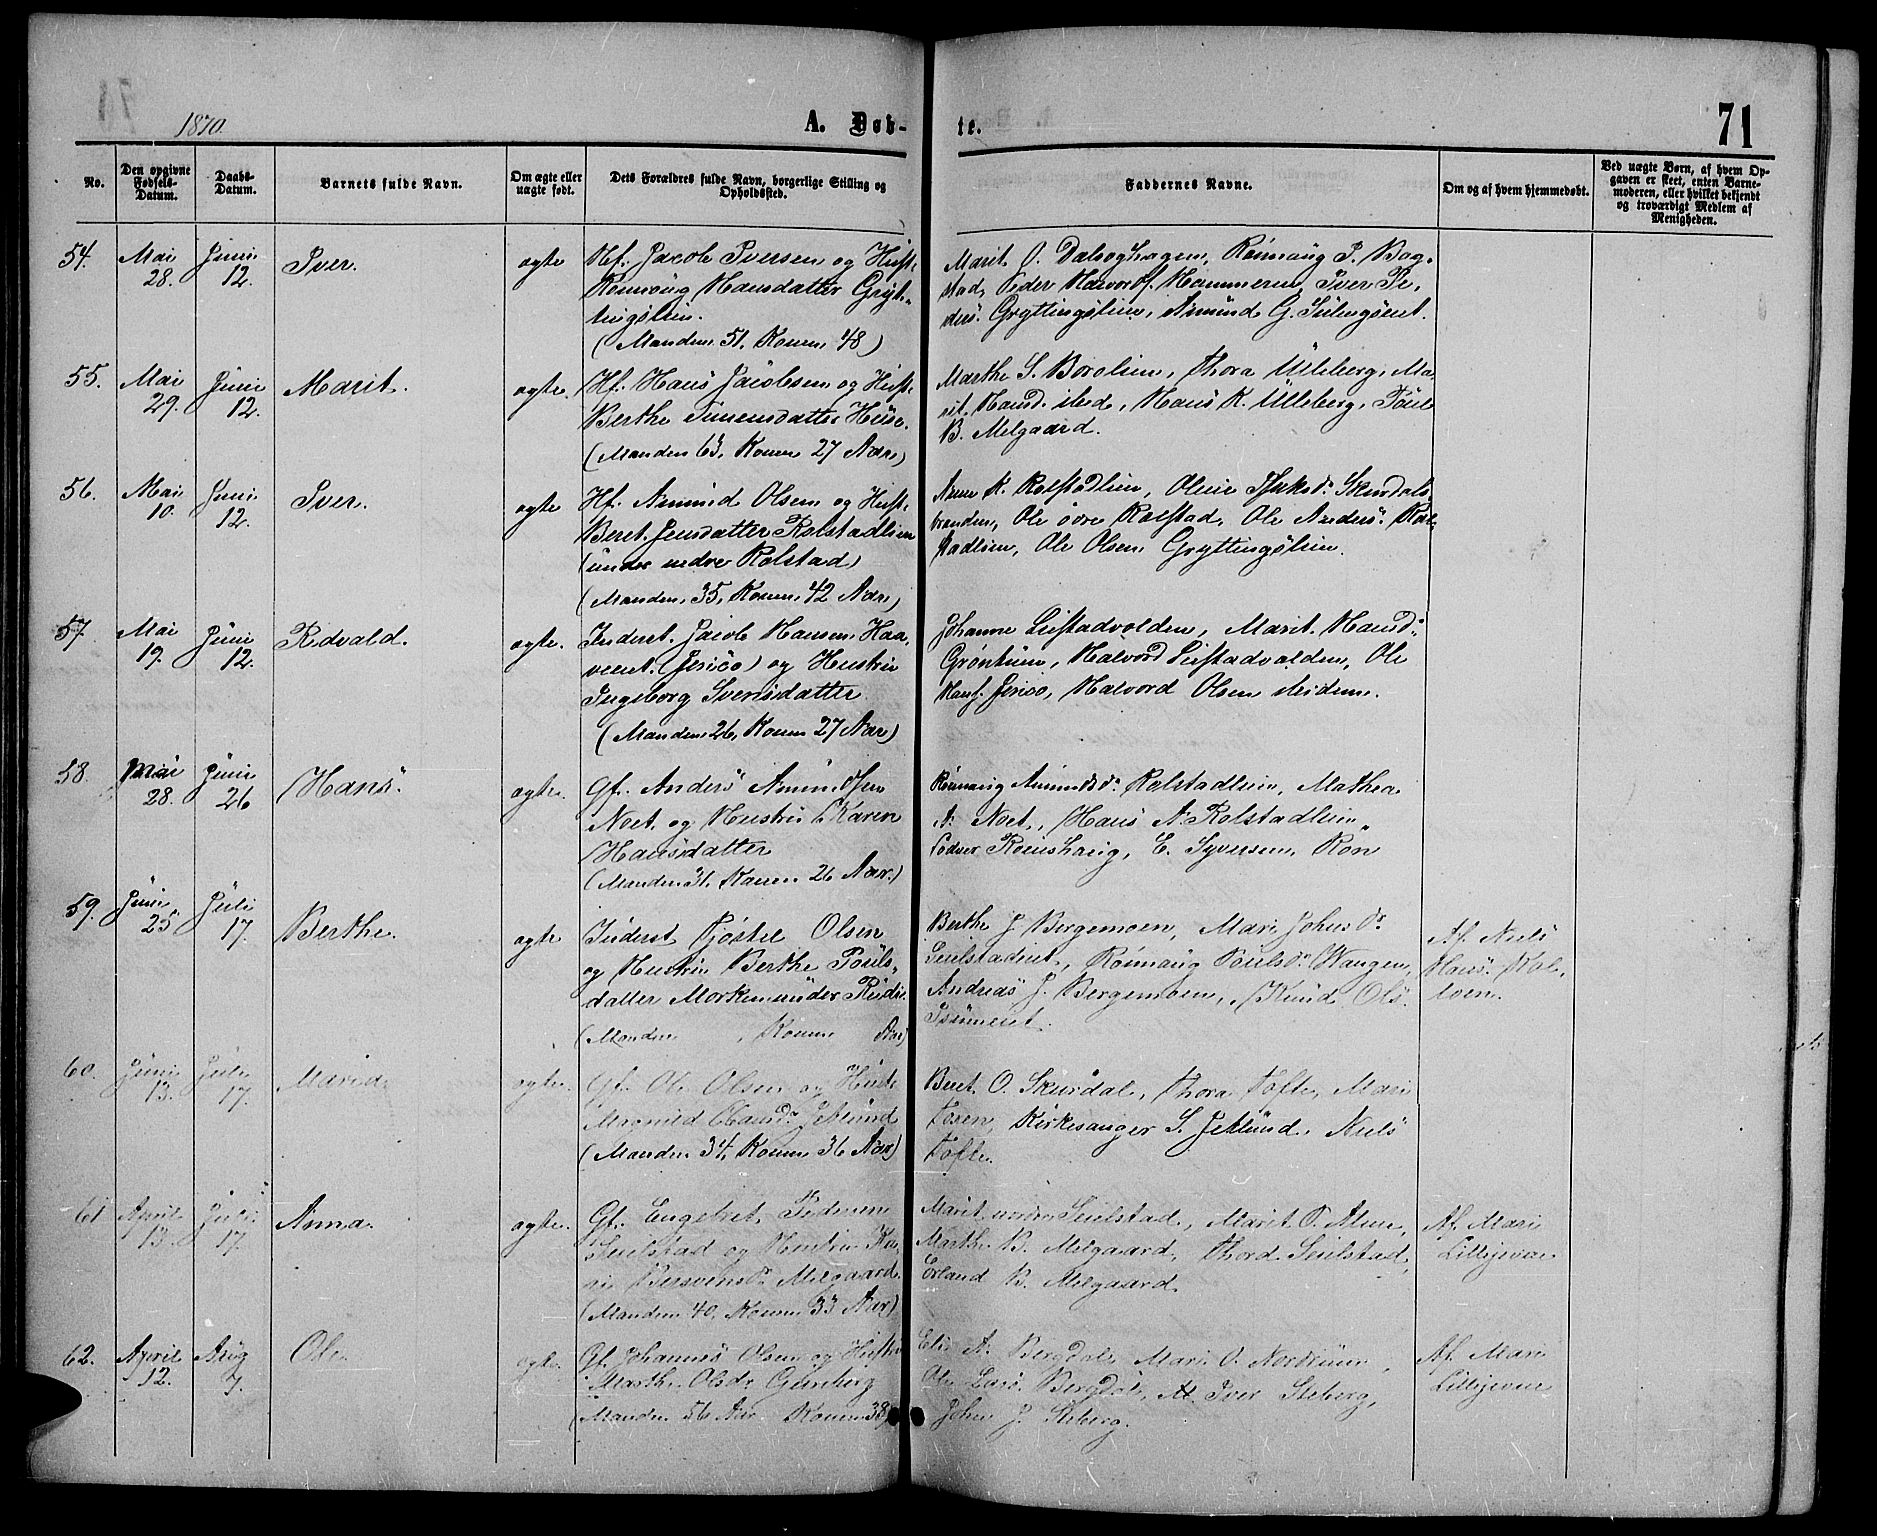 1870.
A. Døb-
te.
71
No.
Den opgivne Fødsels-Datum.
Daabs-Datum.
Barnets fulde Navn.
Om ægte eller uægte født.
Dets Forældres fulde Navn, borgerlige Stilling og Opholdssted.
Faddernes Navne.
Om og af hvem hjemmedøbt.
Ved uægte Børn, af hvem Opgaven er skeet, enten Barnemoderen, eller hvilket bekjendt og troværdigt Medlem af Menigheden.
54. Mai 28. Juni 12. Iver. ægte
Hf. Jacob Iversen og Hustr.
Rønnaug Hansdatter Gryt-
tingslien.
(Manden 51, Konen 48)
Marit O. Daleoghagen, Rønnaug P. Bag-
stad, Peder Halvords. Hammeren, Iver Pe-
ders. Gryttingslien, Amund G.
55. Mai 29. Juni 12. Marit. ægte.
Hf. Hans Jacobsen og Hustr.
Berthe Simensdatter Huse.
(Manden 63, Konen 27 Aar)
Marthe S. Borolien, Thora Ulleberg, Ma-
rit Hansd. sted, Hans K. Ulleberg, Poul
B. Melgaard.
56. Mai 10. Juni 12. Iver. ægte
Hf. Amund Olsen og Hustr.
Beret Jensdatter Rolstadlien
(under nedre Rolstad)
(Manden 35, Konen 42 Aar)
Anne K. Rolstadlien, Oline Skurdals-
branden, Ole øvre Rolstad, Ole Anders. Rol-
stadlien, Ole Olsen Gryttingslien.
57. Mai 19. Juni 12. Redvald. ægte.
Inderst. Jacob Hansen Haa-
veent. (Jerico) og Hustru
Ingeborg Svensdatter
(Manden 26, Konen 27 Aar)
Johanne Listadvolden, Marit Hansd.
Grøntuen, Halvord Listadvolden, Ole
Hans. Jerico, Halvord Olsen
58. Mai 28. Juni 26 Hans. ægte.
Gf. Anders Amundsen
Noet og Hustru Karen
Hansdatter
(Manden 31, Konen 26 Aar.)
Rønnaug Amundsdr. Rolstadlien, Mathea
A. Noet, Hans A. Rolstadlien,
Podver Romshaug, E. Syversen Ron
59. Juni 25 Juli 17. Berthe. ægte
Inderst Kjøstel Olsen
og Hustru Berthe Pouls-
datter Morken under Rudi.
(Manden , Konen Aar)
Berthe J Bergemoen, Mari Johnsdr.
Seielstadeiet, Rønnaug Poulsdr. Wangen,
Andreas J. Bergemoen, Knud Ols.
Af Niels
Hans. Kol-
loen.
60. Juni 13. Juli 17. Maria. ægte.
Gf. Ole Olsen og Hustr.
Hansdr.
(Manden 34, Konen 36 Aar)
Beret O. Skurdal, Thora Tofte, Mari
Tosen, Kirkesanger S. Jetlund, Niels
Tofte.
61 April 13. Juli 17. Anna. ægte.
Gf. Engebret Pedersen
Seielstad og Hustru Ka-
ri Bersvensdr. Melgaard
(Manden 40, Konen 33 Aar)
Marit nordre Seielstad, Marit O. Alme,
Marthe B. Melgaard, Thord Seielstad,
Erland B. Melgaard
Af Mari
Lillejevne
62. April 12. Aug 7. Ole. ægte.
Gf. Johannes Olsen og Hustru
Marthe Olsdr. Gunberg
(Manden 56 Aar. Konen 38)
Eli A. Bergdal, Mari O. Nordruen,
Ole Lars. Bergdal, Iver Steberg,
John J. Steberg.
Af Mari
Lillejevne